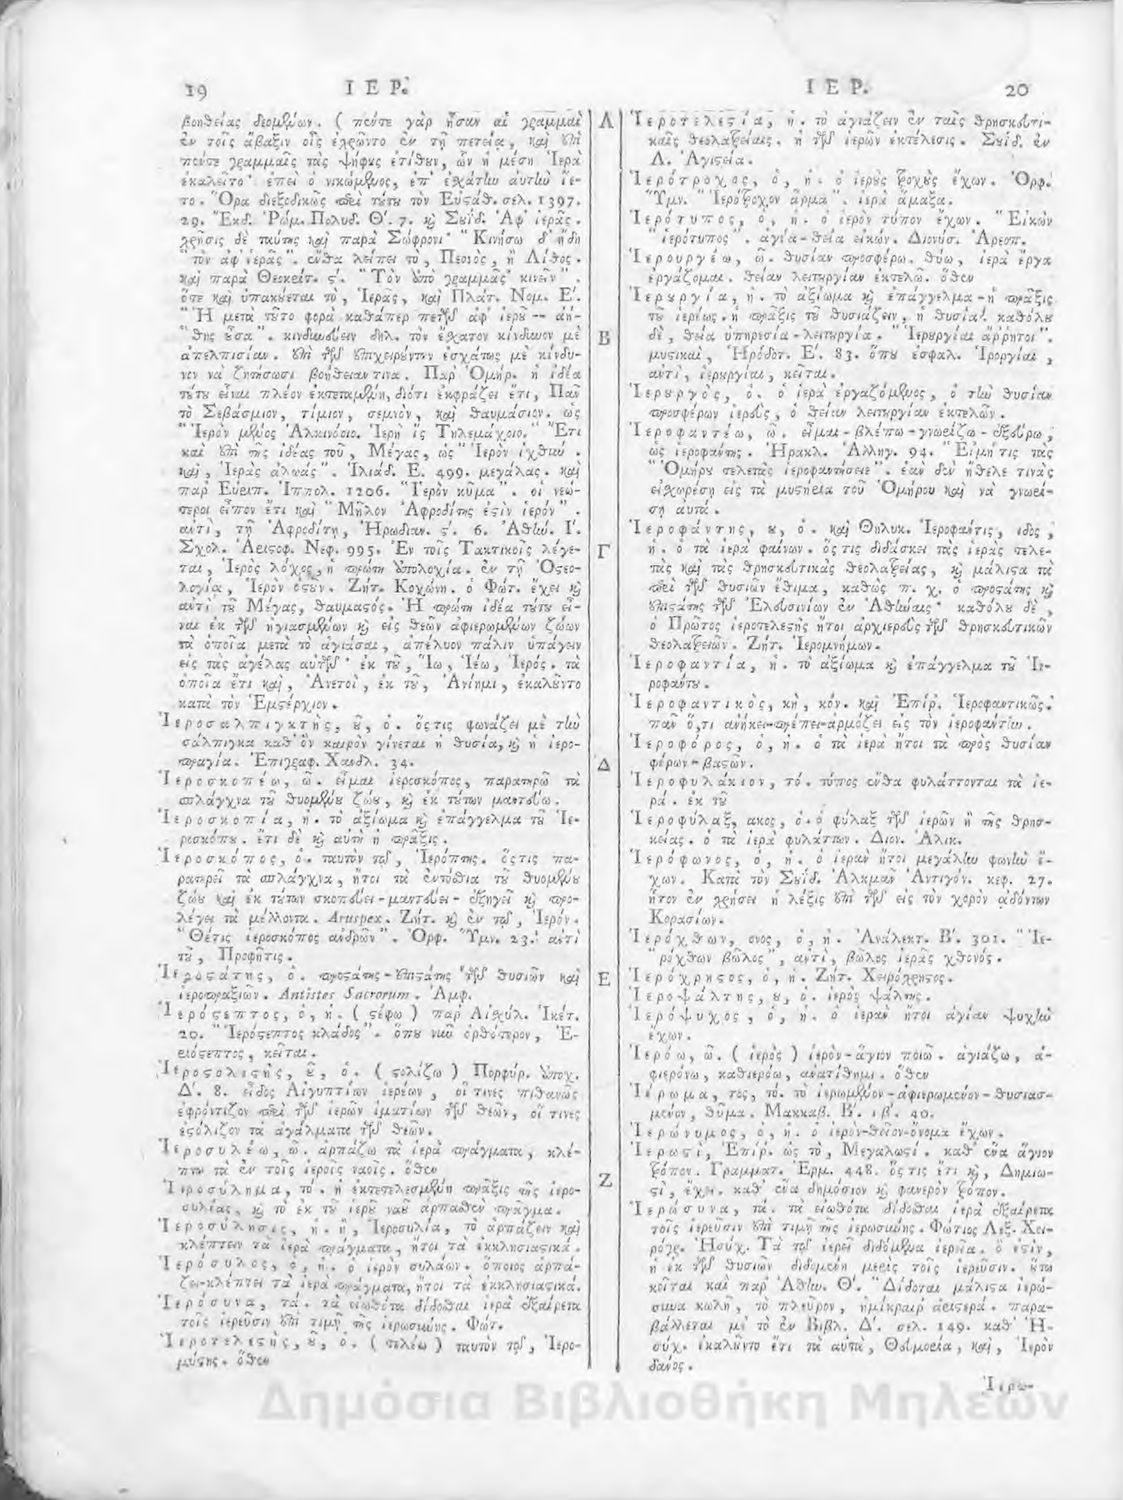 19 ΙΕΡ.
βοηθείας δεομένων. ( πέντε γὰρ ἦσαν αἱ γραμμαὶ
ἐν τοῖς ἄβαξιν οἷς ἐχρῶντο ἐν τῇ πετεία, καὶ ἐπὶ
πέντε γραμμαῖς τὰς ψήφους ἐτίθουν, ὧν ἡ μέση Ἱερὰ
ἐκαλεῖτο· ἐπεὶ ὁ νικώμενος, ἐπ' ἐσχάτην αὐτὴν ἵε-
το. Ὅρα διεξοδικῶς περὶ τούτου τὸν Εὐστάθ. σελ. 1397.
29. Ἔκδ. Ῥώμ. Πολυδ. Θ΄. 7. καὶ Σουΐδ. Ἀφ' ἱερᾶς.
χρῆσις δὲ ταύτης καὶ παρὰ Σώφρονι· "Κινήσω δ' ἤδη
"τὸν ἀφ' ἱερᾶς". ἔνθα λείπει τὸ, Πεσσὸς, ἢ Λίθος.
καὶ παρὰ Θεοκρίτ. ϛ΄. "Τὸν ἀπὸ γραμμᾶς κινεῖν".
ὅτε καὶ ὑπακούεται τὸ, Ἱερᾶς, καὶ Πλάτ. Νομ. Ε΄.
"Ἡ μετὰ τοῦτο φορὰ καθάπερ πεττῶν ἀφ' ἱεροῦ -- ἀή-
"θης οὖσα". κινδυνεύειν δηλ. τὸν ἔσχατον κίνδυνον μὲ
ἀπελπισίαν. ἐπὶ τῶν ἐπιχειρούντων ἐσχάτως μὲ κίνδυ-
νον νὰ ζητήσωσι βοήθειαν τινα. Παρ' Ὁμήρ. ἡ ἰδέα
τούτου εἶναι πλέον ἐκτεταμένη, διότι ἐκφράζει ἔτι, Πᾶν
τὸ Σεβάσμιον, τίμιον, σεμνὸν, καὶ θαυμάσιον. ὡς
"Ἱερὸν μένος Ἀλκινόοιο. Ἱερὴ ἲς Τηλεμάχοιο." Ἔτι
καὶ ἐπὶ τῆς ἰδέας τοῦ, Μέγας, ὡς "Ἱερὸν ἰχθύν.
καὶ, Ἱερὰς ἀλωάς". Ἰλιάδ. Ε. 499. μεγάλας. καὶ
παρ' Εὐριπ. Ἱππολ. 1206. "Ἱερὸν κῦμα". οἱ νεώ-
τεροι εἶπον ἔτι καὶ "Μῆλον Ἀφροδίτης ἐστὶν ἱερόν".
ἀντὶ, τῇ Ἀφροδίτῃ, Ἡρωδιαν. ϛ΄. 6. Ἀθήν. Γ΄.
Σχολ. Ἀριστοφ. Νεφ. 995. Ἐν τοῖς Τακτικοῖς λέγε-
ται, Ἱερὸς λόχος, ἡ πρώτη ὑπολοχία. ἐν τῇ Ὀστεο-
λογία, Ἱερὸν ὀστοῦν. Ζήτ. Κοχώνη. ὁ Φώτ. ἔχει καὶ
ἀντὶ τοῦ Μέγας, θαυμαστός. Ἡ πρώτη ἰδέα τούτου εἶ-
ναι ἐκ τῶν ἡγιασμένων καὶ εἰς θεῶν ἀφιερωμένων ζώων
τὰ ὁποῖα μετὰ τὸ ἁγιάσαι, ἀπέλυον πάλιν ὑπάγειν
εἰς τὰς ἀγέλας αὐτῶν· ἐκ τοῦ, Ἵω, Ἱέω, Ἱερός. τὰ
ὁποῖα ἔτι καὶ, Ἄνετοι, ἐκ τοῦ, Ἀνίημι, ἐκαλοῦντο
κατὰ τὸν Ἐμστέρχιον.
Ἱεροσαλπιγκτὴς, οῦ, ὁ. ὅστις φωνάζει μὲ τὴν
σάλπιγκα καθ' ὃν καιρὸν γίνεται ἡ θυσία, καὶ ἡ ἱερο-
πραγία. Ἐπιγραφ. Χανδλ. 34.
Ἱεροσκοπέω, ῶ. εἶμαι ἱεροσκόπος, παρατηρῶ τὰ
σπλάγχνα τοῦ θυομένου ζώου, καὶ ἐκ τούτων μαντεύω.
Ἱεροσκοπία, ἡ. τὸ ἀξίωμα καὶ ἐπάγγελμα τοῦ Ἱε-
ροσκόπου. ἔτι δὲ καὶ αὐτὴ ἡ πρᾶξις.
Ἱεροσκόπος, ὁ. ταυτὸν τῷ, Ἱερόπτης. ὅστις πα-
ρατηρεῖ τὰ σπλάγχνα, ἤτοι τὰ ἐντόσθια τοῦ θυομένου
ζώου καὶ ἐκ τούτων σκοπεύει-μαντεύει-ἐξηγεῖ καὶ προ-
λέγει τὰ μέλλοντα. Aruspex. Ζήτ. καὶ ἐν τῷ, Ἱερόν.
"Θέτις ἱεροσκόπος ἀνδρῶν". Ὀρφ. Ὕμν. 23. ἀντὶ
τοῦ, Προφῆτις.
Ἱεροστάτης, ὁ. προστάτης-ἐπιστάτης τῶν θυσιῶν καὶ
ἱεροπραξιῶν. Antistes Sacrorum. Ἀμφ.
Ἱερόστεπτος, ὁ, ἡ. ( στέφω ) παρ' Αἰσχύλ. Ἱκέτ.
20. "Ἱερόστεπτος κλάδος". ὅπου νῦν ὀρθότερον, Ἐ-
ριόστεπτος, κεῖται.
Ἱεροστολιστὴς, οῦ, ὁ. ( στολίζω ) Πορφύρ. ἀποχ.
Δ΄. 8. εἶδος Αἰγυπτίων ἱερέων, οἵτινες πιθανῶς
ἐφρόντιζον περὶ τῶν ἱερῶν ἱματίων τῶν θεῶν, οἵτινες
ἐστόλιζον τὰ ἀγάλματα τῶν θεῶν.
Ἱεροσυλέω, ῶ. ἁρπάζω τὰ ἱερὰ πράγματα, κλέ-
πτω τὰ ἐν τοῖς ἱεροῖς ναοῖς. ὅθεν
Ἱεροσύλημα, τό. ἡ ἐκτετελεσμένη πρᾶξις τῆς ἱερο-
συλίας, καὶ τὸ ἐκ τοῦ ἱεροῦ ναοῦ ἁρπαθὲν πρᾶγμα.
Ἱεροσύλησις, ἡ. ἢ, Ἱεροσυλία, τὸ ἁρπάζειν καὶ
κλέπτειν τὰ ἱερὰ πράγματα, ἤτοι τὰ ἐκκλησιαστικά.
Ἱερόσυλος, ὁ, ἡ. ὁ ἱερὸν συλάων. ὅποιος ἁρπά-
ζει-κλέπτει τὰ ἱερὰ πράγματα, ἤτοι τὰ ἐκκλησιαστικά.
Ἱερόσυνα, τά. τὰ εἰωθότα δίδοσθαι ἱερὰ ἐξαίρετα
τοῖς ἱερεῦσιν ἐπὶ τιμῇ τῆς ἱερωσύνης. Φώτ.
Ἱεροτελεστὴς, οῦ, ὁ. ( τελέω ) ταυτὸν τῷ, Ἱερο-
μύστης. ὅθεν
Α
Β
Γ
Δ
Ε
Ζ
ΙΕΡ. 20
Ἱεροτελεστία, ἡ. τὸ ἁγιάζειν ἐν ταῖς θρησκευτι-
καῖς θεολατρείαις. ἡ τῶν ἱερῶν ἐκτέλεσις. Σουΐδ. ἐν
Λ. Ἁγιστεία.
Ἱερότροχος, ὁ, ἡ. ὁ ἱεροὺς τροχοὺς ἔχων. Ὀρφ.
Ὕμν. "Ἱερότροχον ἅρμα". ἱερὰ ἅμαξα.
Ἱερότυπος, ὁ, ἡ. ὁ ἱερὸν τύπον ἔχων. "Εἰκὼν
"ἱερότυπος". ἁγία-θεία εἰκών. Διονύσ. Ἀρεοπ.
Ἱερουργέω, ῶ. θυσίαν προσφέρω. θύω, ἱερὰ ἔργα
ἐργάζομαι. θείαν λειτουργίαν ἐκτελῶ. ὅθεν
Ἱερουργία, ἡ. τὸ ἀξίωμα καὶ ἐπάγγελμα-ἡ πρᾶξις
τοῦ ἱερέως. ἡ πρᾶξις τοῦ θυσιάζειν, ἡ θυσία. καθόλου
δὲ, θεία ὑπηρεσία-λειτουργία. "Ἱερουργίαι ἄῤῥητοι".
μυστικαὶ, Ἡρόδοτ. Ε΄. 83. ὅπου ἐσφαλ. Ἱροργίαι,
ἀντὶ, ἱερουργίαι, κεῖται.
Ἱερουργὸς, ὁ. ὁ ἱερὰ ἐργαζόμενος, ὁ τὴν θυσίαν
προσφέρων ἱερεὺς, ὁ θείαν λειτουργίαν ἐκτελῶν.
Ἱεροφαντέω, ῶ. εἶμαι-βλέπω-γνωρίζω-ἐξεύρω,
ὡς ἱεροφάντης. Ἡρακλ. Ἀλληγ. 94. "Εἰμή τις τὰς
"Ὁμήρου τελετὰς ἱεροφαντήσειε". ἐὰν δὲν ἤθελέ τινὰς
εἰσχωρέσῃ εἰς τὰ μυστήρια τοῦ Ὁμήρου καὶ νὰ γνωρί-
σῃ αὐτά.
Ἱεροφάντης, ου, ὁ. καὶ Θηλυκ. Ἱεροφάντις, ιδος,
ἡ. ὁ τὰ ἱερὰ φαίνων. ὅστις διδάσκει τὰς ἱερὰς τελε-
τὰς καὶ τὰς θρησκευτικὰς θεολατρείας, καὶ μάλιστα τὰ
περὶ τῶν θυσιῶν ἔθιμα, καθὼς π. χ. ὁ προστάτης καὶ
ἐπιστάτης τῶν Ἐλευσινίων ἐν Ἀθήναις· καθόλου δὲ,
ὁ Πρῶτος ἱεροτελεστὴς ἤτοι ἀρχιερεὺς τῶν θρησκευτικῶν
θεολατρειῶν. Ζήτ. Ἱερομνήμων.
Ἱεροφαντία, ἡ. τὸ ἀξίωμα καὶ ἐπάγγελμα τοῦ Ἱε-
ροφάντου.
Ἱεροφαντικὸς, κὴ, κόν. καὶ Ἐπίῤ. Ἱεροφαντικῶς.
πᾶν ὅ,τι ἀνήκει-πρέπει-ἁρμόζει εἰς τὸν ἱεροφάντην.
Ἱεροφόρος, ὁ, ἡ. ὁ τὰ ἱερὰ ἤτοι τὰ πρὸς θυσίαν
φέρων-βαστῶν.
Ἱεροφυλάκιον, τό. τόπος ἔνθα φυλάττονται τὰ ἱε-
ρά. ἐκ τοῦ
Ἱεροφύλαξ, ακος, ὁ. ὁ φύλαξ τῶν ἱερῶν ἢ τῆς θρησ-
κείας. ὁ τὰ ἱερὰ φυλάττων. Διον. Ἁλικ.
Ἱερόφωνος, ὁ, ἡ. ὁ ἱερὰν ἤτοι μεγάλην φωνὴν ἔ-
χων. Κατὰ τὸν Σουΐδ. Ἀλκμὰν Ἀντιγόν. κεφ. 27.
ἦτον ἐν χρήσει ἡ λέξις ἐπὶ τῶν εἰς τὸν χορὸν ᾀδόντων
Κορασίων.
Ἱερόχθων, ονος, ὁ, ἡ. Ἀνάλεκτ. Β΄. 301. "Ἱε-
"ρόχθων βῶλος", ἀντὶ, βῶλος ἱερᾶς χθονός.
Ἱερόχρηστος, ὁ, ἡ. Ζήτ. Χειρόχρηστος.
Ἱεροψάλτης, ου, ὁ. ἱερὸς ψάλτης.
Ἱερόψυχος, ὁ, ἡ. ὁ ἱερὰν ἤτοι ἁγίαν ψυχὴν
ἔχων.
Ἱερόω, ῶ. ( ἱερὸς ) ἱερὸν-ἅγιον ποιῶ. ἁγιάζω, ἀ-
φιερόνω, καθιερόω, ἀνατίθημι. ὅθεν
Ἱέρωμα, τος, τό. τὸ ἱερωμένον-ἀφιερωμένον-θυσιασ-
μένον, θῦμα. Μακκαβ. Β΄. ιβ΄. 40.
Ἱερώνυμος, ὁ, ἡ. ὁ ἱερὸν-θεῖον-ὄνομα ἔχων.
Ἱερωστὶ, Ἐπίῤ. ὡς τὸ, Μεγαλωστί. καθ' ἕνα ἅγιον
τρόπον. Γραμματ. Ἑρμ. 448. ὅστις ἔτι καὶ, Δημιω-
στὶ, ἔχει. καθ' ἕνα δημόσιον καὶ φανερὸν τρόπον.
Ἱερώσυνα, τά. τὰ εἰωθότα δίδοσθαι ἱερὰ ἐξαίρετα
τοῖς ἱερεῦσιν ἐπὶ τιμῇ τῆς ἱερωσύνης. Φώτιος Λεξ. Χει-
ρόγρ. Ἡσύχ. Τὰ τῷ ἱερεῖ διδόμενα ἱερεῖα. ὅ ἐστὶν,
ἡ ἐκ τῶν θυσιῶν διδομένη μερὶς τοῖς ἱερεῦσιν. οὕτω
κεῖται καὶ παρ' Ἀθήν. Θ΄. "Δίδοται μάλιστα ἱερώ-
συνα κωλῆ, τὸ πλεῦρον, ἡμίκραιρ' ἀριστερά. παρα-
βάλλεται μὲ τὸ ἐν Βιβλ. Δ΄. σελ. 149. καθ' Ἡ-
σύχ. ἐκαλοῦντο ἔτι τὰ αὐτὰ, Θεύμορία, καὶ, Ἱερὸν
δάνος.
Ἱερω-
Δημόσια Βιβλιοθήκη Μηλεών